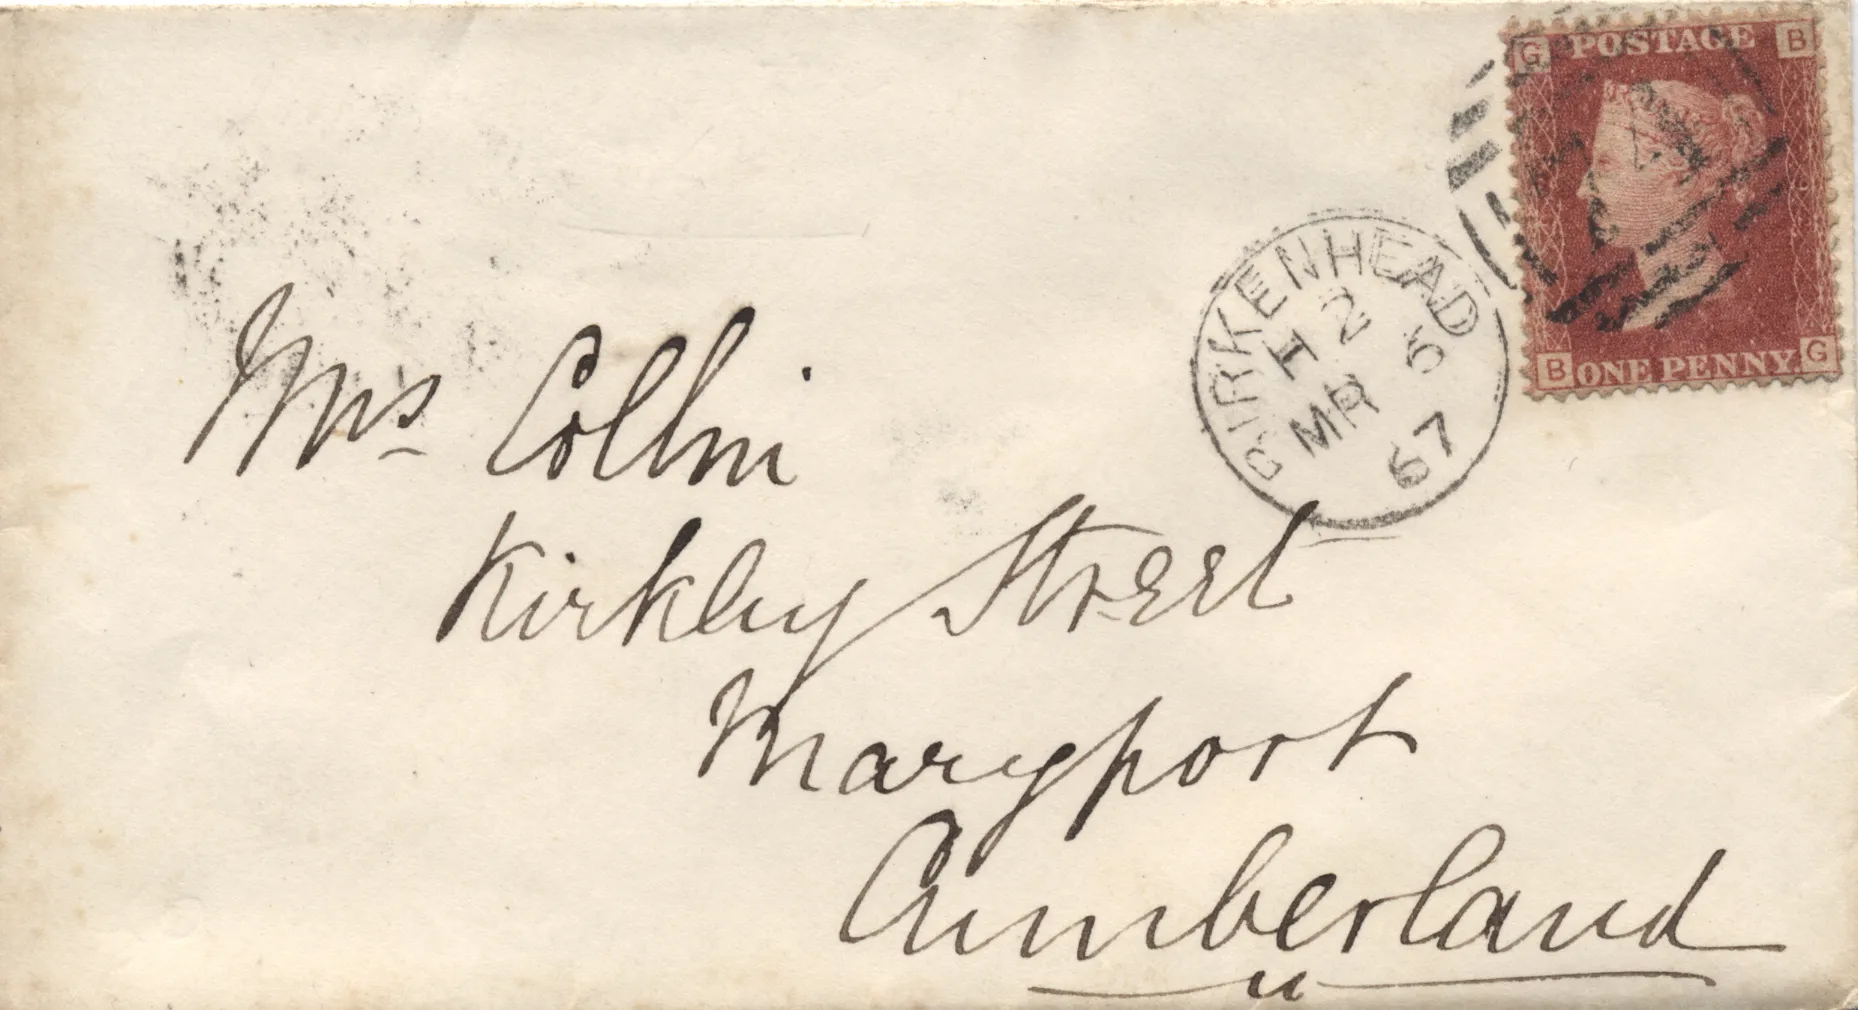 G POSTAGE B
B ONE PENNY. G
BIRKENHEAD
H 2
MR 5
67
Mrs Collin
Kirkby Street
Maryport
Cumberland